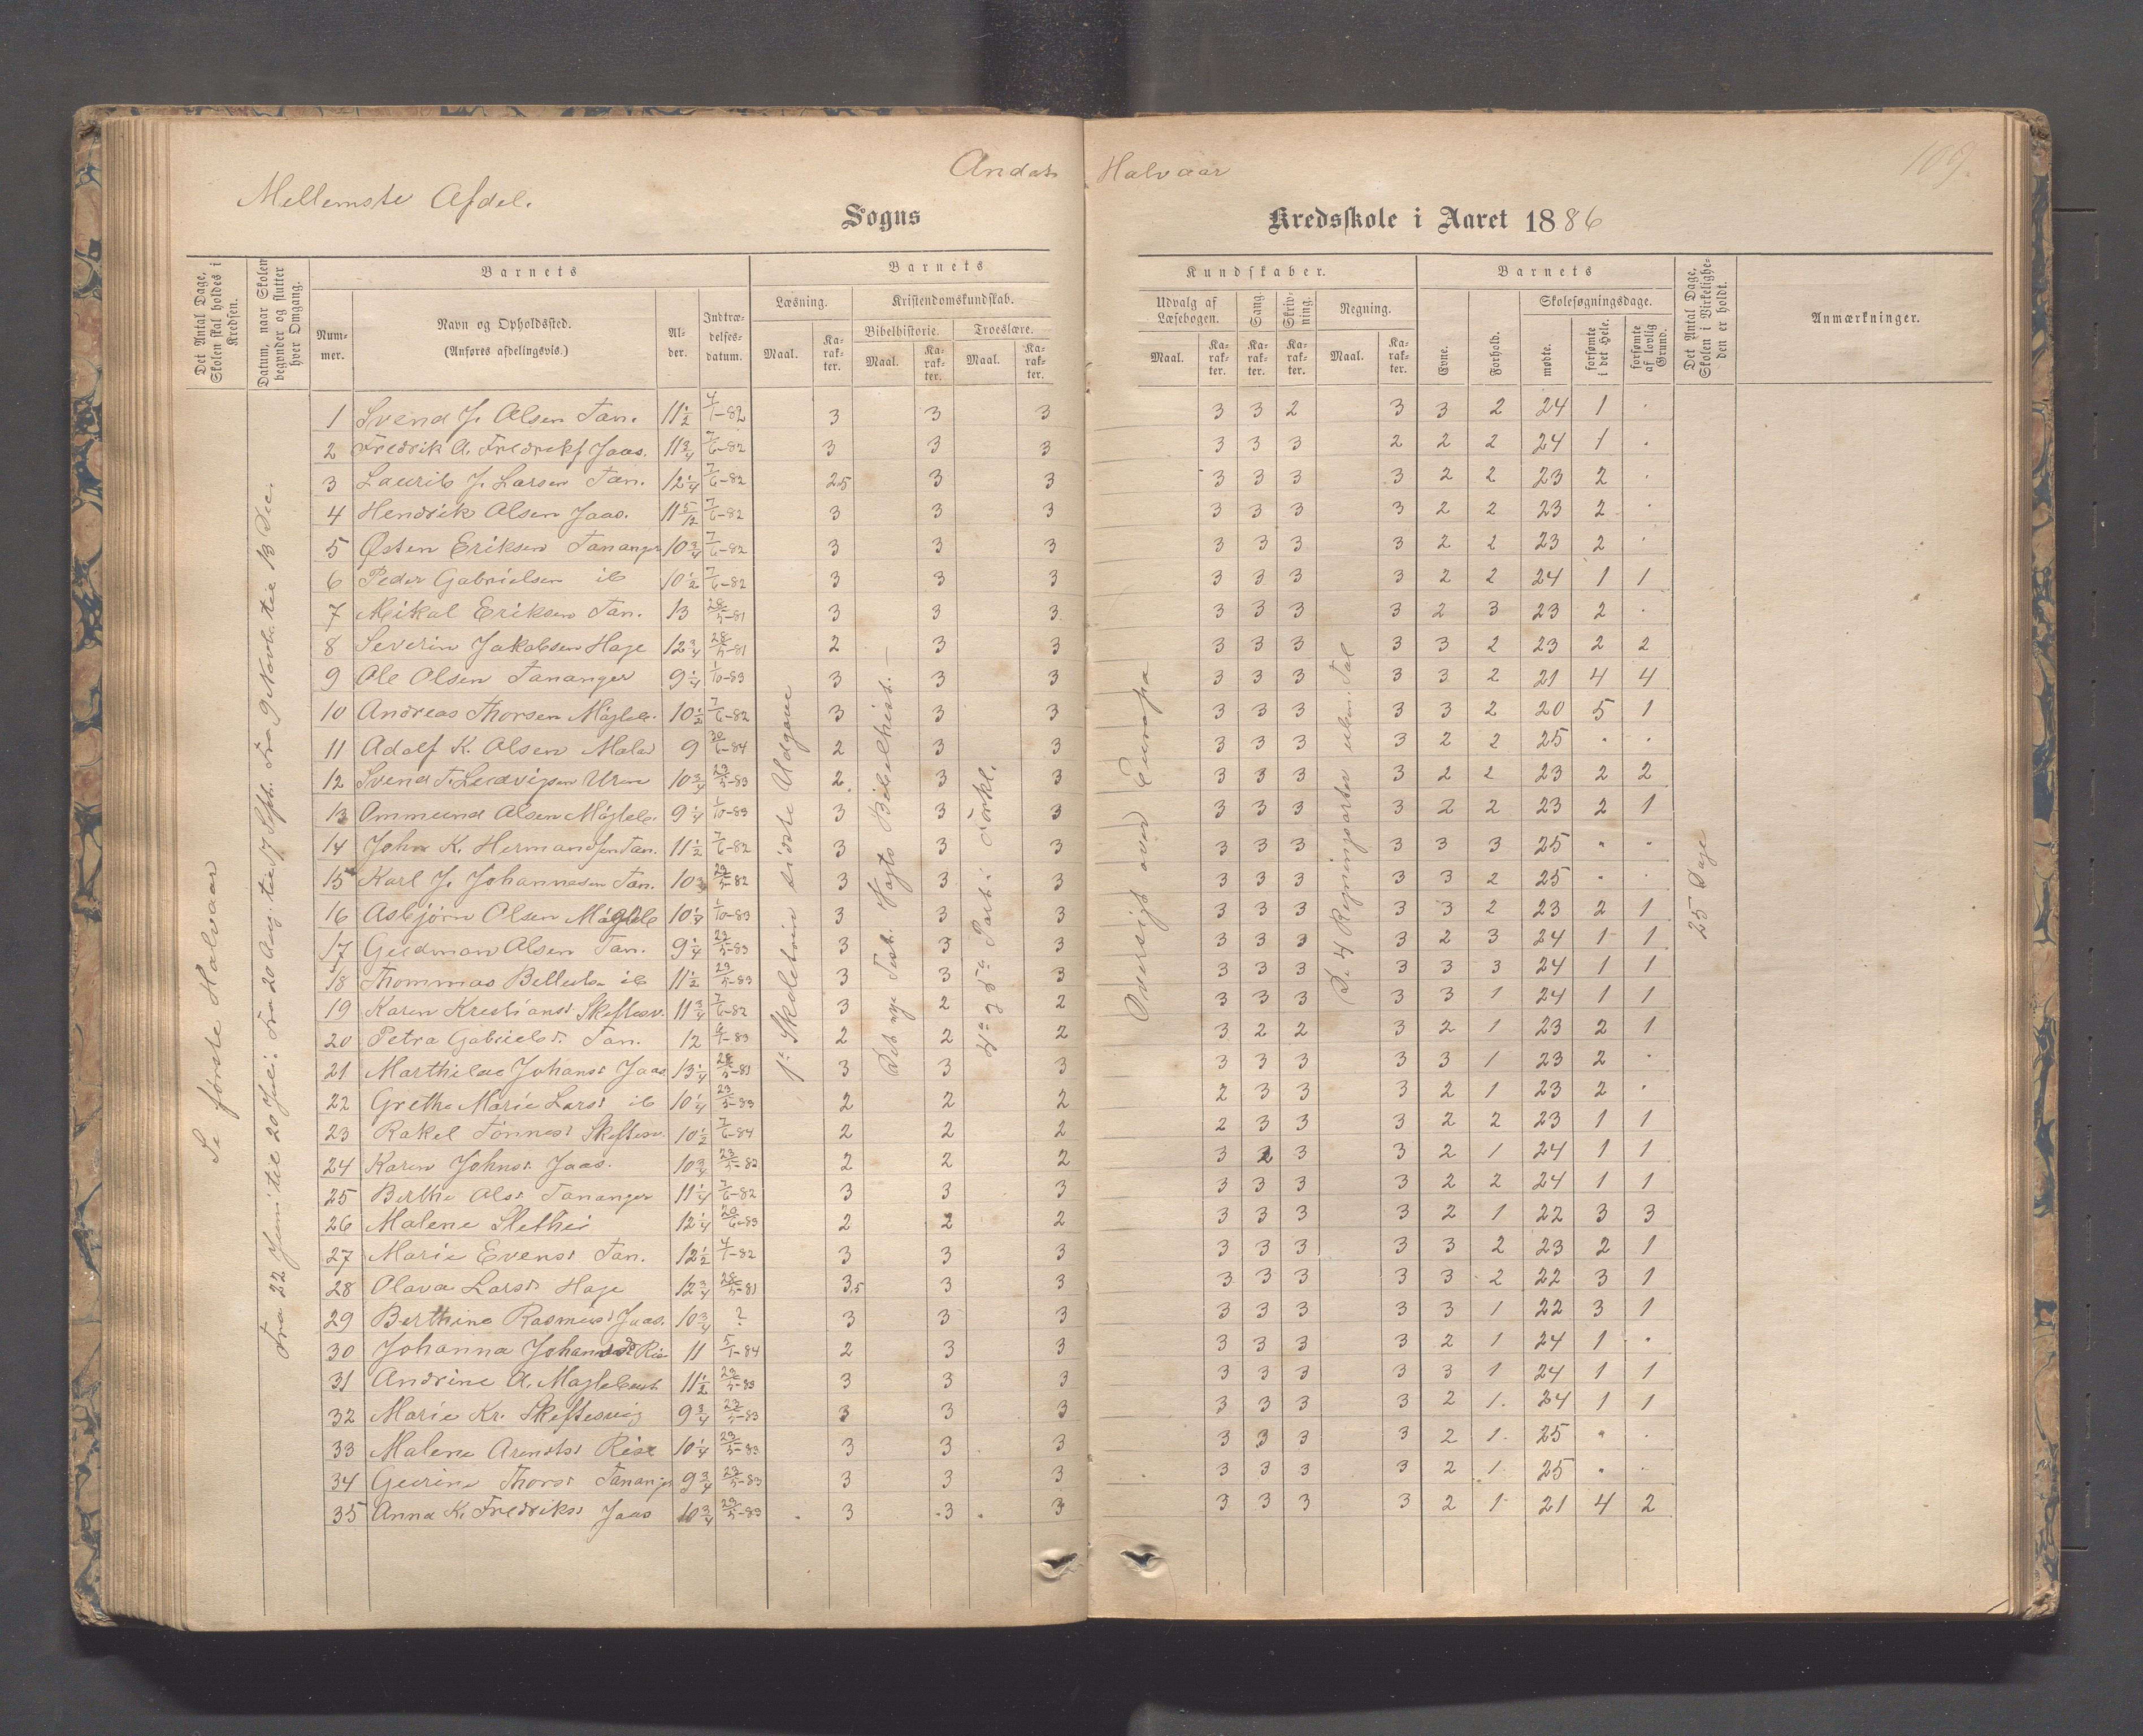 Andet Halvaar
109
Mellemste Afdel.
Sogns Kredsskole i Aaret 1886
Det Antal Dage, Skolen skal holdes i Kredsen.
Datum, naar Skolen begynder og slutter hver Omgang.
Barnets
Nummer.
Navn og Opholdssted.
(Anføres afdelingsvis.)
Alder.
Indtrædelsesdatum.
Barnets Kundskaber.
Læsning.
Maal.
Karakter.
Kristendomskundskab.
Bibelhistorie.
Maal.
Karakter.
Troeslære.
Maal.
Karakter.
Udvalg af Læsebogen.
Maal.
Karakter.
Sang.
Karakter.
Skrivning.
Karakter.
Regning.
Maal.
Karakter.
Barnets
Evne.
Forhold.
Skolesøgningsdage.
mødte.
forsømte i det Hele.
forsømte af lovlig Grund.
Det Antal Dage, Skolen i Virkeligheden er holdt.
Anmærkninger.
Se første Halvaar
Fra 22 Juni til 20 Juli. Fra 20 Aug. til 17 Sept. Fra 9 Novbr. til 13 Dec.
1ste Skoletrin sidste Udgave
Det nye Test. Vogts Bibelhist.
4de og 5te Part i Forkl.
Oversigt over Europa
De 4 Regningsarter ubn. Tal
25 Dage
1 Svend J. Olsen Tan. 11 1/2 4/1-82 3 3 3 3 3 2 3 3 2 24 1 .
2 Fredrik A. Fredriks. Jaas. 11 3/4 7/6-82 3 3 3 3 3 3 2 2 2 24 1 .
3 Laurits J. Larsen Tan. 12 1/4 7/6-82 2,5 3 3 3 3 3 3 2 2 23 2 .
4 Hendrik Olsen Jaas. 11 5/12 7/6-82 3 3 3 3 3 3 3 2 2 23 2 .
5 Østen Eriksen Tananger 10 3/4 7/6-82 3 3 3 3 3 3 3 2 2 23 2 .
6 Peder Gabrielsen ib 10 1/2 7/6-82 3 3 3 3 3 3 3 2 2 24 1 1
7 Mikal Eriksen Tan. 13 28/5-81 3 3 3 3 3 3 3 2 3 23 2 .
8 Severin Jakobsen Hage 12 3/4 28/5-81 2 3 3 3 3 3 3 3 2 23 2 2
9 Ole Olsen Tananger 9 1/4 1/10-83 3 3 3 3 3 3 3 3 2 21 4 4
10 Andreas Thorsen Mågleb. 10 1/2 7/6-82 3 3 3 3 3 3 3 3 2 20 5 1
11 Adolf K. Olsen 9 30/6-84 2 3 3 3 3 3 3 2 2 25 " "
12 Svend T. Ludvigsen 10 3/4 23/5-83 2 3 3 3 3 3 3 2 2 23 2 2
13 Ommund Olsen Mågleb. 9 1/4 1/10-83 3 3 3 3 3 3 3 2 2 23 2 1
14 John K. Hermandsen Tan. 11 1/2 7/6-82 3 3 3 3 3 3 3 3 3 25 " "
15 Karl J. Johannesen Tan. 10 3/4 23/5-82 3 3 3 3 3 3 3 3 2 25 " .
16 Asbjørn Olsen Mågleb 10 1/4 1/10-83 3 3 3 3 3 3 3 3 2 23 2 1
17 Gudman Olsen Tan. 9 1/4 23/5-83 3 3 3 3 3 3 3 2 3 24 1 1
18 Thommas ib 11 1/2 23/5-83 3 3 3 3 3 3 3 3 3 24 1 1
19 Karen Kristiansd. Skeftesv. 11 3/4 7/6-82 3 2 2 3 3 3 3 3 1 24 1 1
20 Petra Gabrielsd. Tan. 12 4/1-83 2 2 2 3 2 2 3 2 1 23 2 1
21 Marthilde Johansd. Jaas 13 1/4 28/5-81 3 3 3 3 3 3 3 3 1 23 2 .
22 Grethe Marie Larsd. ib 10 1/4 23/5-83 2 2 2 2 3 3 3 2 1 23 2 .
23 Rakel Tønnesd. Skeftesv. 10 1/2 7/6-84 2 2 2 2 3 3 3 2 2 23 1 1
24 Karen Johnsd. Jaas. 10 3/4 23/5-82 2 2 2 3 2 3 3 2 1 24 1 1
25 Berthe Olsd. Tananger 11 1/4 7/6-82 3 3 3 3 3 3 3 2 2 24 1 1
26 Malene 12 1/4 20/6-83 2 2 2 3 3 3 3 2 1 22 3 3
27 Marie Evensd. Tan. 12 1/2 4/1-82 3 3 3 3 3 3 3 3 2 23 2 1
28 Olava Larsd. Hage 12 3/4 28/5-81 3,5 3 3 3 3 3 3 3 2 22 3 1
29 Berthine Rasmusd. Jaas. 10 3/4 ? 3 3 3 3 3 3 3 3 1 22 3 1
30 Johanna Johansd. 11 5/1-84 2 3 3 3 3 3 3 2 1 24 1 .
31 Andrine A. Maglebust 11 1/2 23/5-83 3 3 3 3 3 3 3 3 1 24 1 1
32 Marie Kr. Skeftesvig 9 3/4 23/5-83 3 3 3 3 3 3 3 2 1 24 1 1
33 Malene Arentsd. Risa 10 1/4 23/5-83 3 3 3 3 3 3 3 2 1 25 " .
34 Gurine Thorsd. Tananger 9 3/4 23/5-83 3 3 3 3 3 3 3 2 1 25 " .
35 Anna K. Fredriksd. Jaas 10 3/4 23/5-83 3 3 3 3 3 3 3 2 1 21 4 2